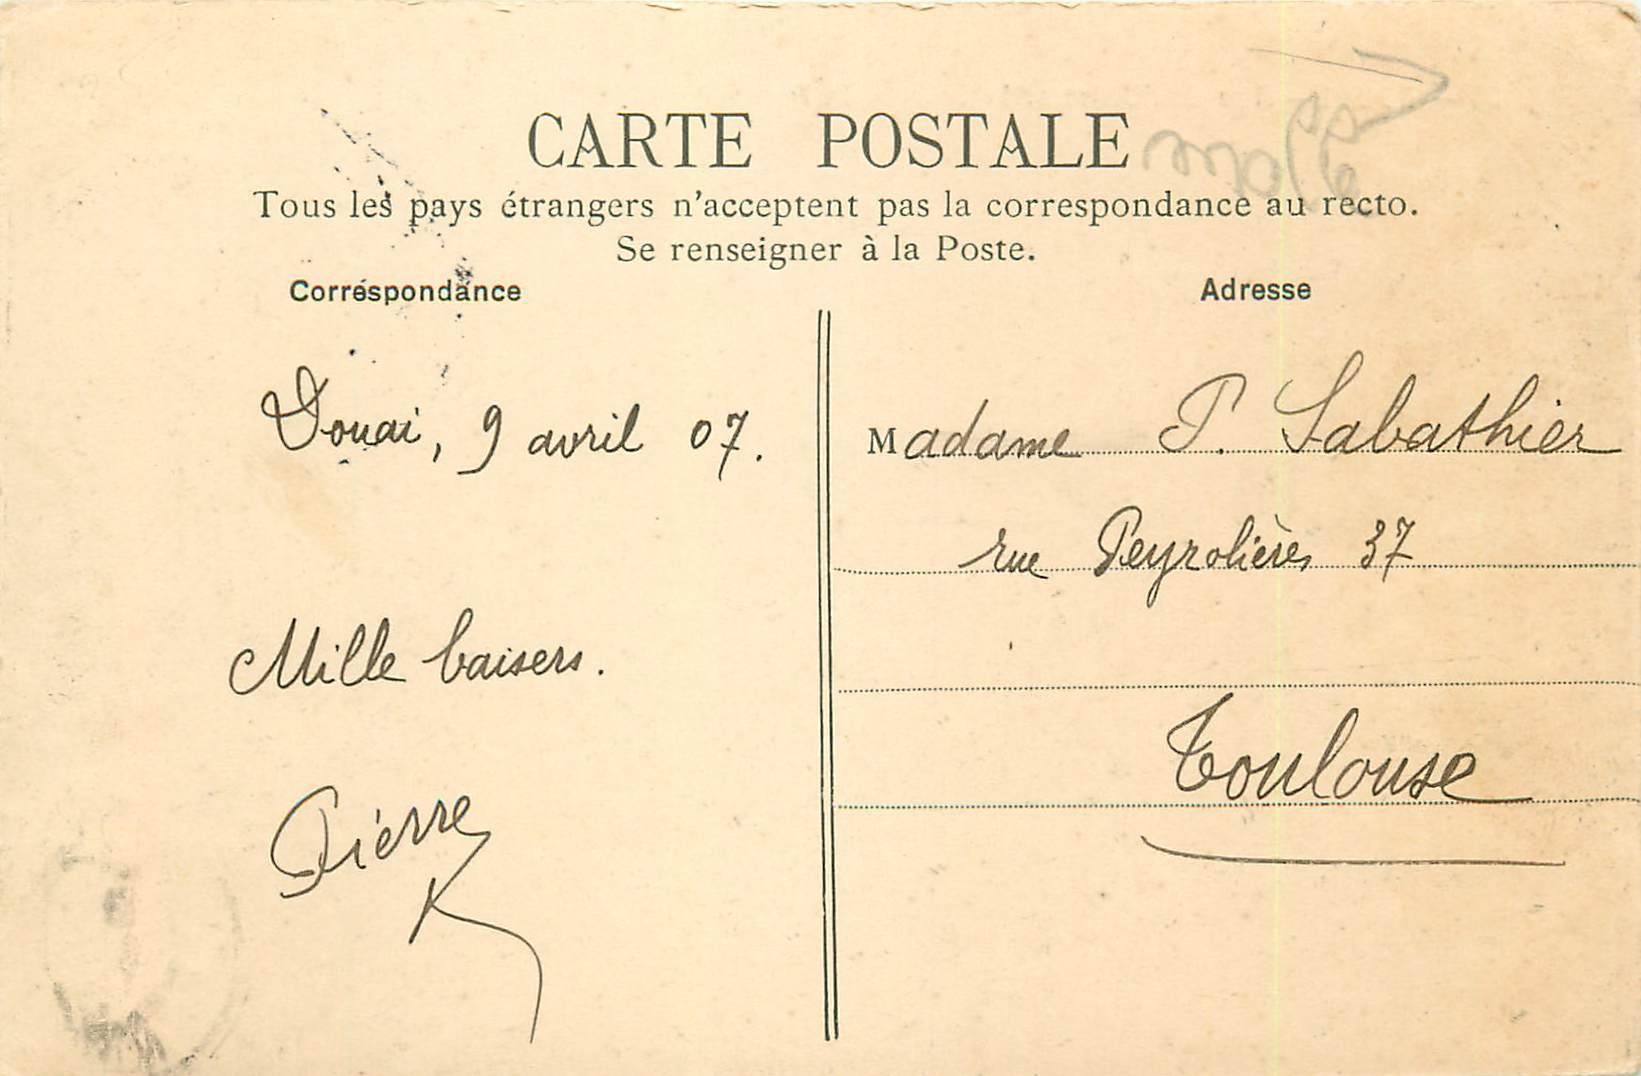 CARTE POSTALE
Tous les pays étrangers n'acceptent pas la correspondance au recto.
Se renseigner à la Poste.
Correspondance
Douai, 9 avril 07.
Mille baisers.
Pierre
Adresse
Madame P. Sabathier
rue Peyrolières 37
Toulouse